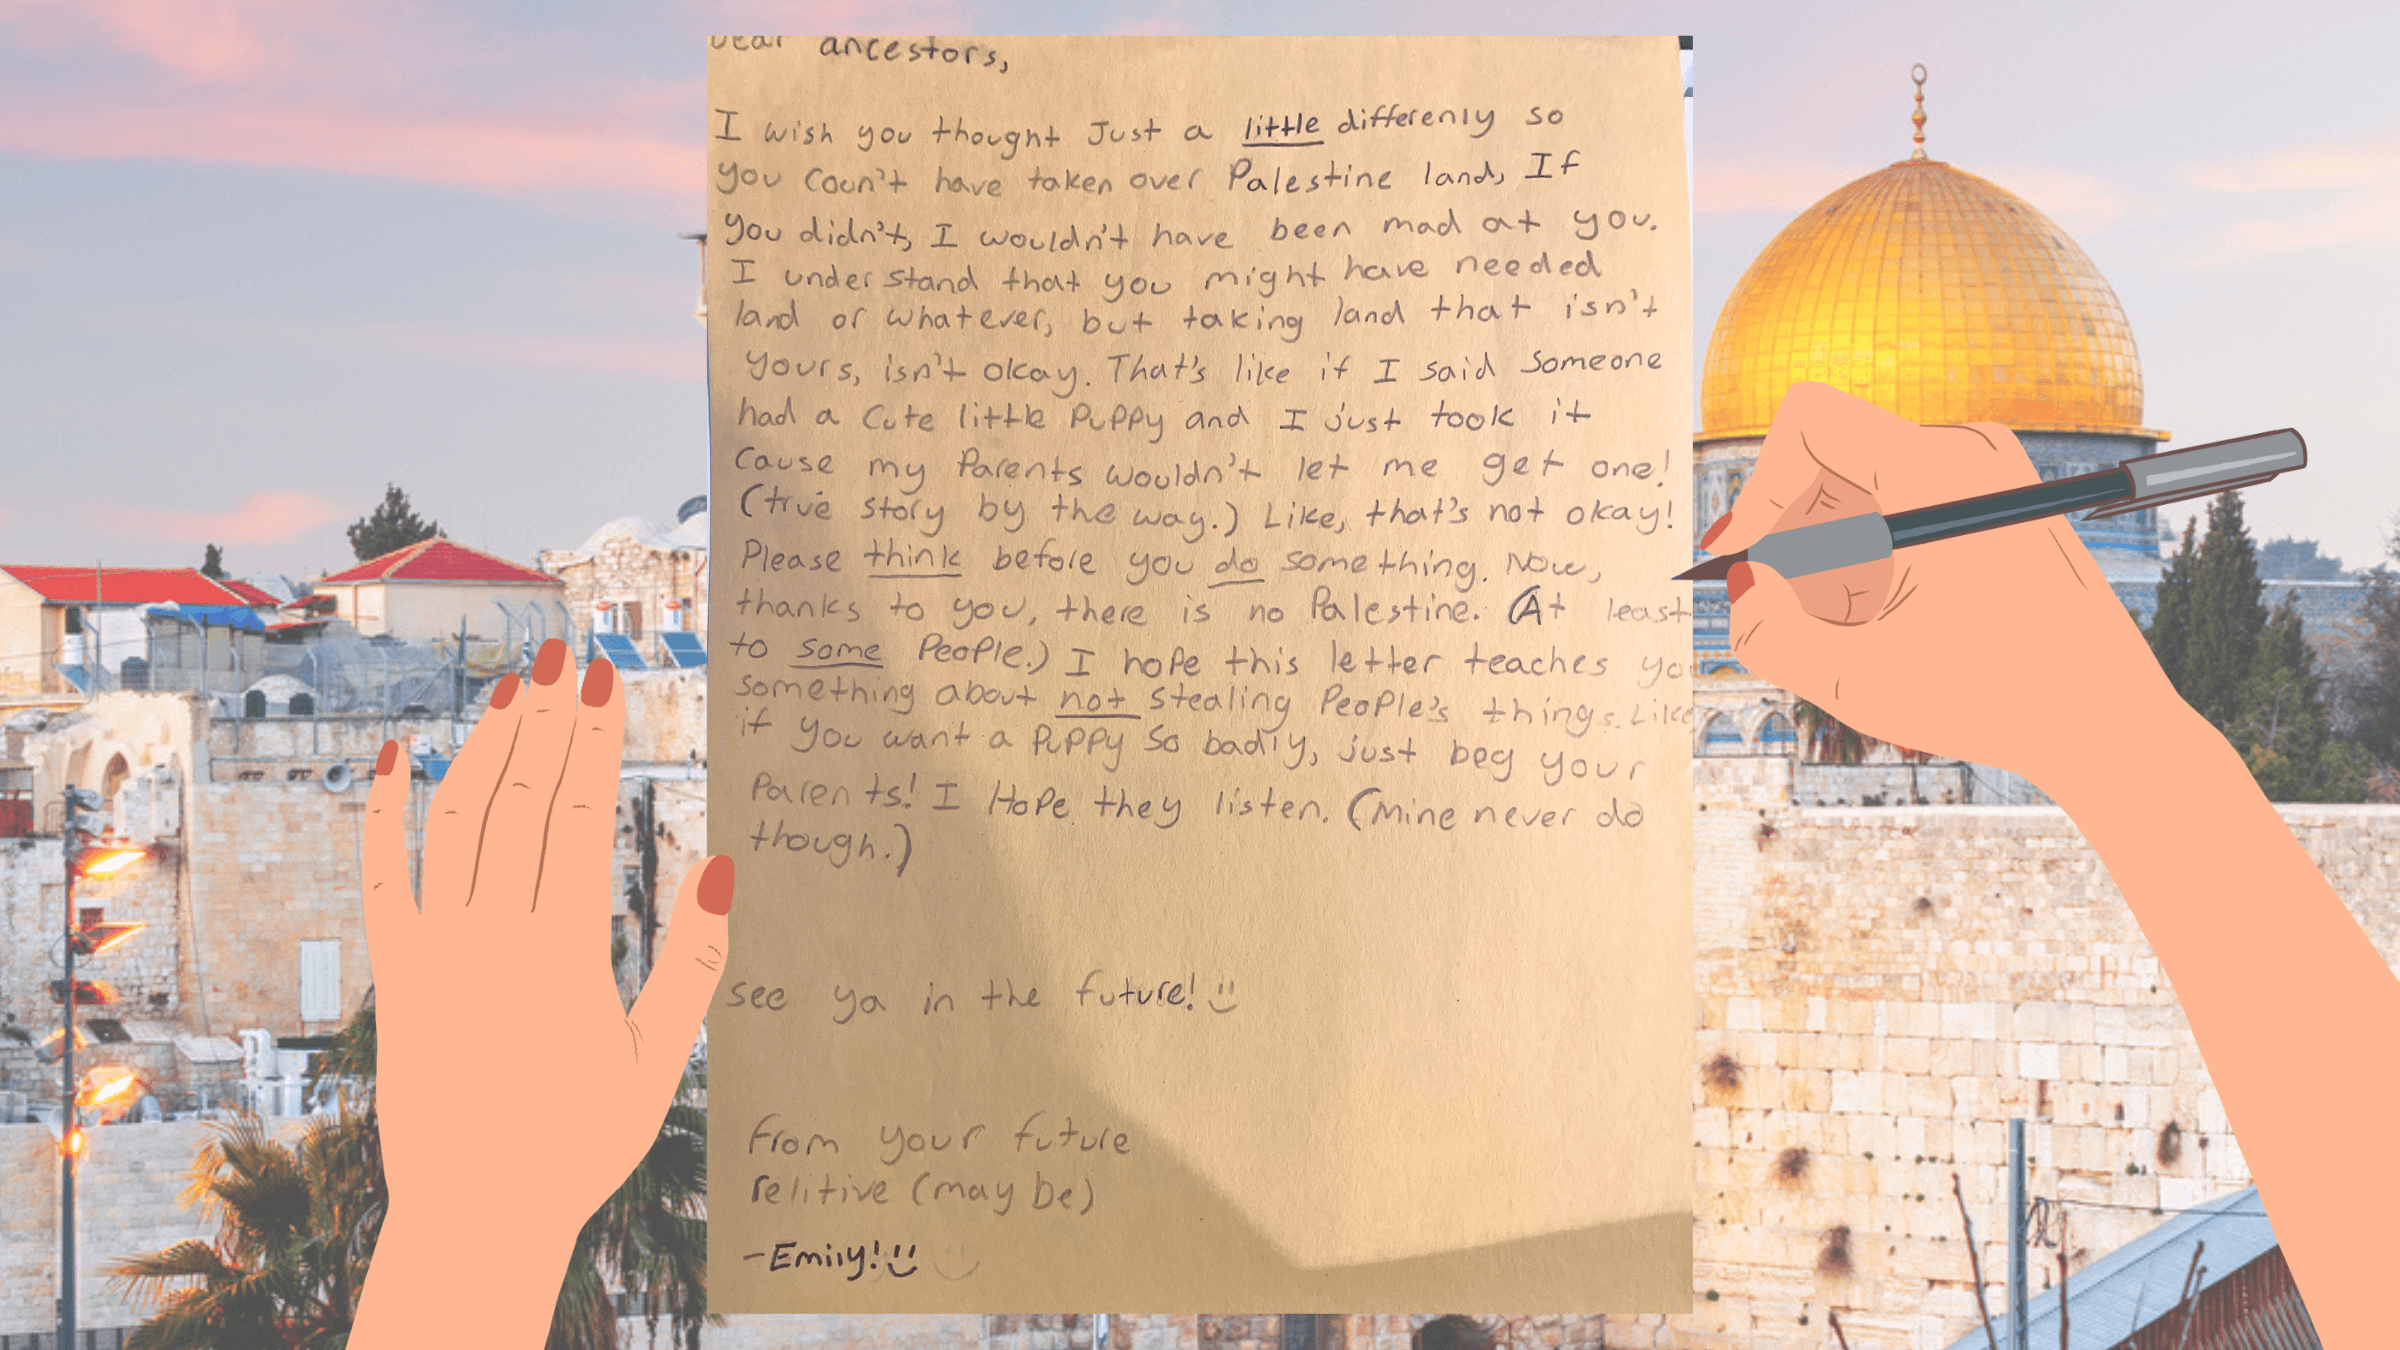 Dear ancestors,
I wish you thought Just a little differenly so
you Coun't have taken over Palestine land, If
you didn't, I wouldn't have been mad at you.
I understand that you might have needed
land or whatever, but taking land that isn't
yours, isn't okay. That's like if I said Someone
had a Cute little Puppy and I just took it
Cause my Parents wouldn't let me get one!
(true story by the way.) Like, that's not okay!
Please think before you do something. Now,
thanks to you, there is no Palestine. (At least
to some People.) I hope this letter teaches you
something about not stealing People's things. Like,
if you want a Puppy so badly, just beg your
Parents! I Hope they listen. (Mine never do
though.)
see ya in the future!
From your future
relitive (may be)
-Emily!